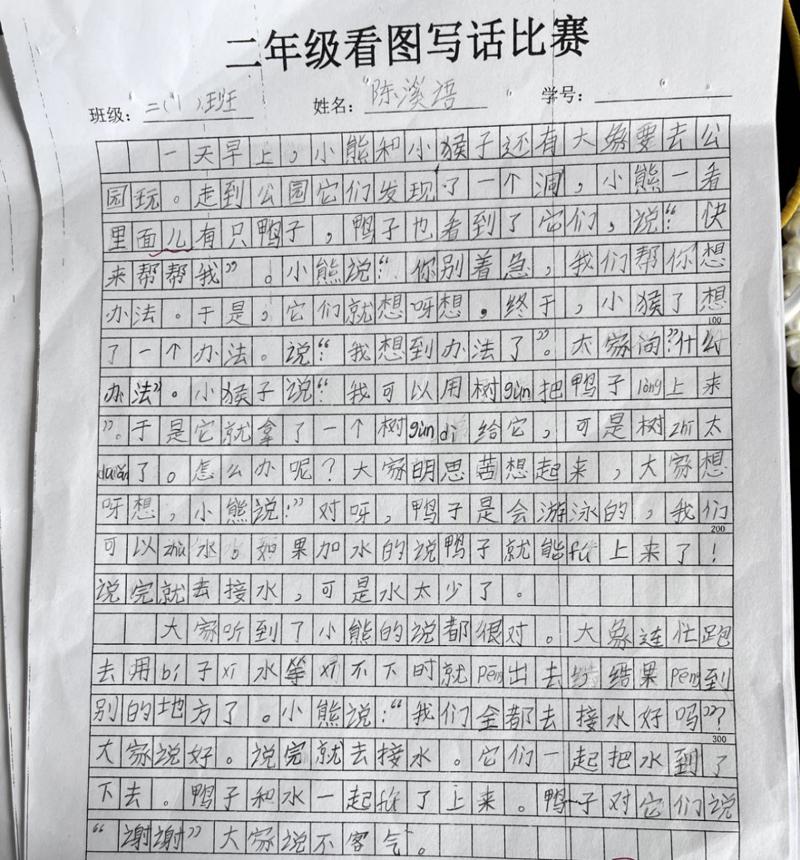 二年级看图写话比赛
班级：二（1）班 姓名：陈溪语 学号：
一天早上，小熊和小猴子还有大象要去公
园玩。走到公园它们发现了一个洞，小熊一看
里面儿有只鸭子，鸭子也看到了它们，说：“快
来帮帮我”。小熊说：“你别着急，我们帮你想
办法。于是，它们就想呀想，终于，小猴了想
100
了一个办法。说：“我想到办法了”。大家问：”什么
办法”。小猴子说：“我可以用树gùn把鸭子lòng上来
”。于是它就拿了一个树gùn dì给它，可是树zhī太
duǎn了。怎么办呢？大家明思苦想起来，大家想
呀想，小熊说：”对呀，鸭子是会游泳的，我们
200
可以zhù水，如果加水的说鸭子就能fú上来了！
说完就去接水，可是水太少了。
大家听到了小熊的说都很对。大象连忙跑
去用bí子xī水等xī不下时就pēn出去结果pēn到
别的地方了。小熊说：“我们全都去接水好吗”？
300
大家说好。说完就去接水。它们一起把水到了
下去。鸭子和水一起fú了上来。鸭子对它们说
“谢谢”大家说不客气。